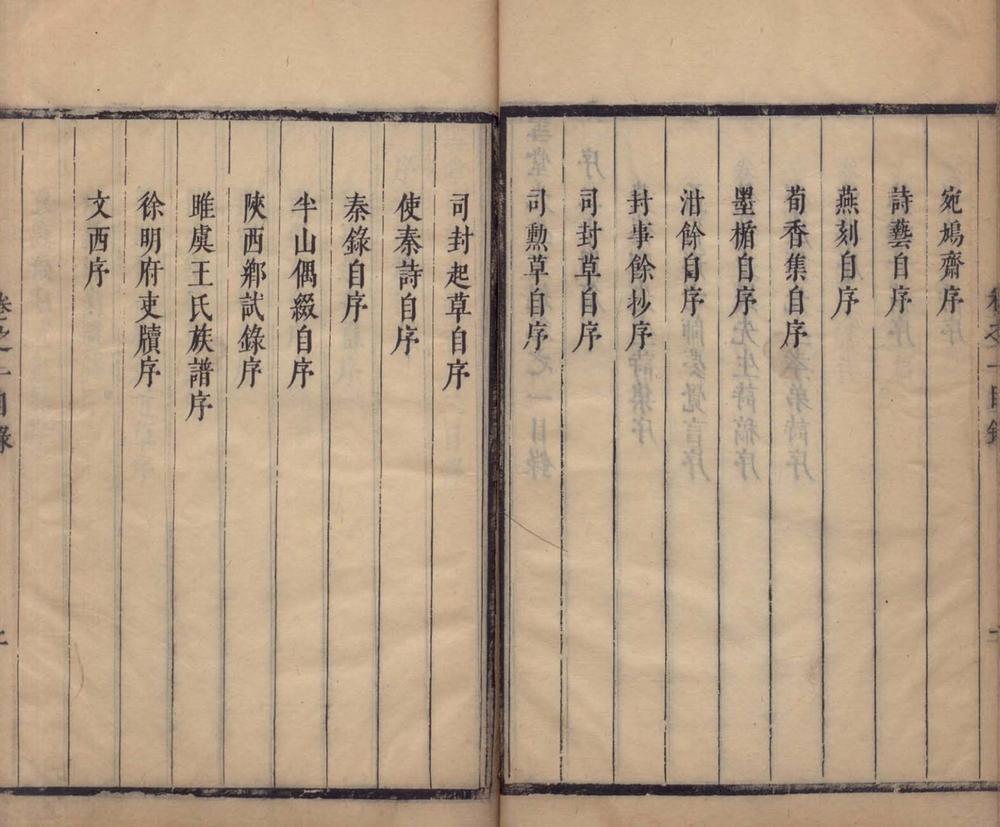 宛鳩齋序
詩藝自序
燕刻自序
荀香集自序
墨楯自序
泔餘自序
封事餘抄序
司封草自序
司勲草自序
司封起草自序
使秦詩自序
秦錄自序
半山偶綴自序
陝西鄉試錄序
睢虞王氏族譜序
徐明府吏牘序
文西序
卷之一目錄